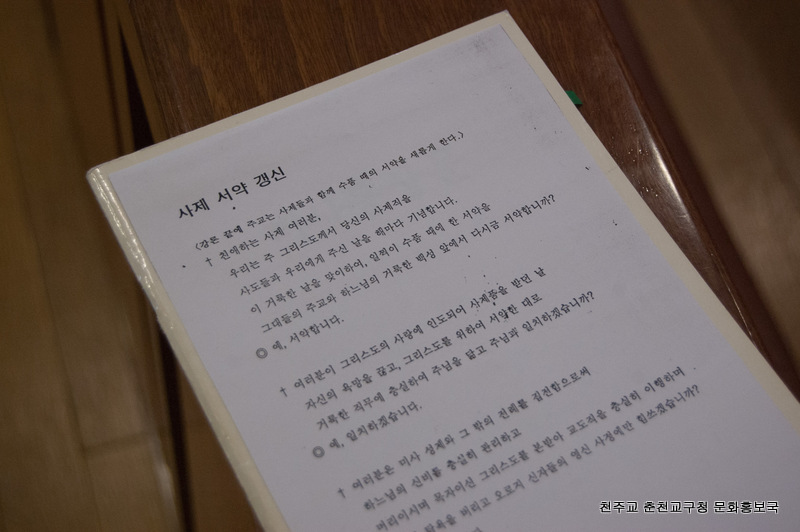 사제 서약 갱신
(강론 끝에 주교는 사제들과 함께 수품 때의 서약을 새롭게 한다.)
† 친애하는 사제 여러분,
우리는 주 그리스도께서 당신의 사제직을
사도들과 우리에게 주신 날을 해마다 기념합니다.
이 거룩한 날을 맞이하여, 일찍이 수품 때에 한 서약을
그대들의 주교와 하느님의 거룩한 백성 앞에서 다시금 서약합니까?
◎ 예, 서약합니다.
† 여러분이 그리스도의 사랑에 인도되어 사제품을 받던 날
자신의 욕망을 끊고, 그리스도를 위하여 서약한 대로
거룩한 직무에 충실하여 주님을 닮고 주님과 일치하겠습니까?
◎ 예, 일치하겠습니다.
† 여러분은 미사 성제와 그 밖의 전례를 집전함으로써
하느님의 신비를 충실히 관리하고
머리이시며 목자이신 그리스도를 본받아 교도직을 충실히 이행하며
탐욕을 버리고 오로지 신자들의 영신 사정에만 힘쓰겠습니까?
천주교 춘천교구청 문화홍보국